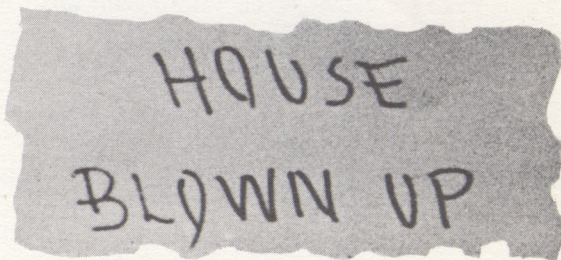 HOUSE
BLOWN UP